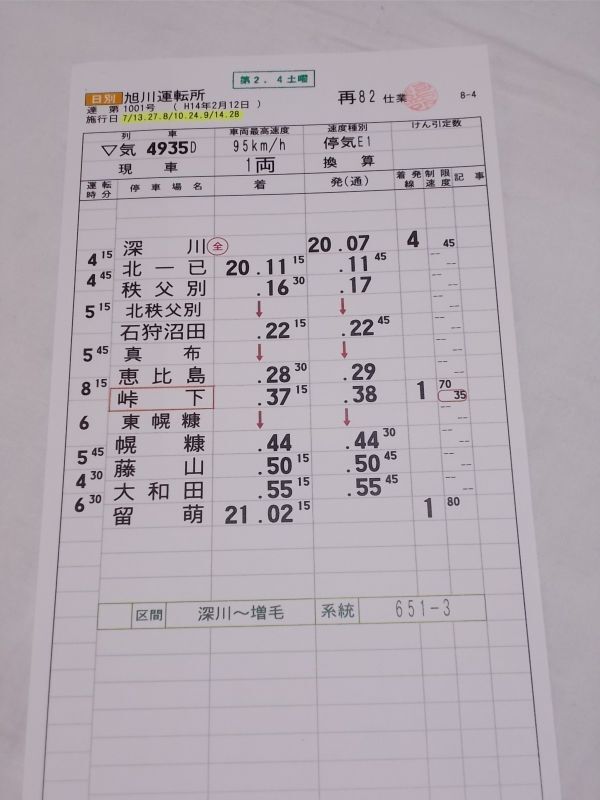 第2.4土曜
日別 旭川運転所 再82仕業 8-4
達 第1001号 ( H14年2月12日 )
施行日 7/13.27.8/10.24.9/14.28
列車 車両最高速度 速度種別 けん引定数
▽気 4935D 95km/h 停気E1
現車 1両 換算
運転時分 停車場名 着 発(通) 着発線 制限速度 記事
深川 全 20.07 4 45
4 15
北一已 20.11 15 .11 45
4 45
秩父別 .16 30 .17
5 15 北秩父別 ↓ ↓
石狩沼田 .22 15 .22 45
5 45 真布 ↓ ↓
恵比島 .28 30 .29
8 15
峠下 .37 15 .38 1 70 35
6 東幌糠 ↓ ↓
幌糠 .44 .44 30
5 45
藤山 .50 15 .50 45
4 30
大和田 .55 15 .55 45
6 30
留萌 21.02 15 1 80
区間 深川～増毛 系統 651-3